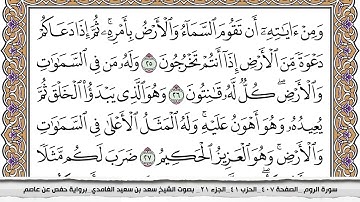 وَمِنْ ءَايَـٰتِهِۦٓ أَن تَقُومَ ٱلسَّمَآءُ وَٱلْأَرْضُ بِأَمْرِهِۦ ۚ ثُمَّ إِذَا دَعَاكُمْ
دَعْوَةً مِّنَ ٱلْأَرْضِ إِذَآ أَنتُمْ تَخْرُجُونَ ٢٥ وَلَهُۥ مَن فِى ٱلسَّمَـٰوَٰتِ
وَٱلْأَرْضِ ۖ كُلٌّ لَّهُۥ قَـٰنِتُونَ ٢٦ وَهُوَ ٱلَّذِى يَبْدَؤُا۟ ٱلْخَلْقَ ثُمَّ
يُعِيدُهُۥ وَهُوَ أَهْوَنُ عَلَيْهِ ۚ وَلَهُ ٱلْمَثَلُ ٱلْأَعْلَىٰ فِى ٱلسَّمَـٰوَٰتِ
وَٱلْأَرْضِ ۚ وَهُوَ ٱلْعَزِيزُ ٱلْحَكِيمُ ٢٧ ضَرَبَ لَكُم مَّثَلًا
سورة الروم _ الصفحة ٤٠٧ _ الحزب ٤١ _ الجزء ٢١ _ بصوت الشيخ سعد بن سعيد الغامدي _ برواية حفص عن عاصم